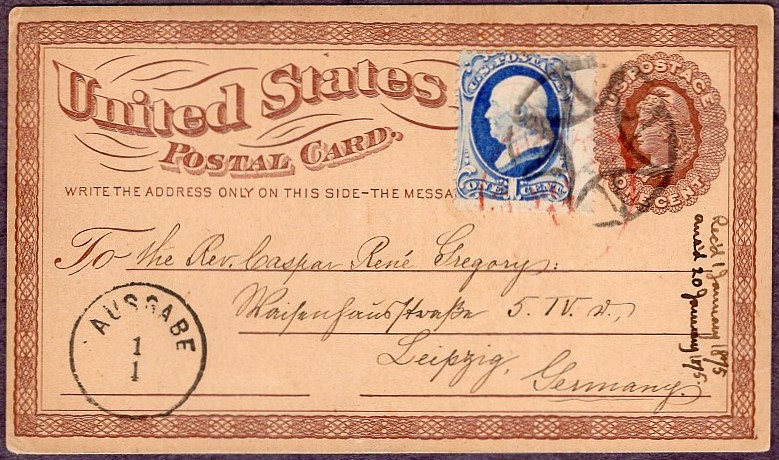 United States
POSTAL CARD.
U.S. POSTAGE
ONE 1 CENT
U.S. POSTAGE
ONE CENT
WRITE THE ADDRESS ONLY ON THIS SIDE-THE MESSA
To the Rev. Caspar René Gregory:
Waisenhausstraße 5. IV. r.,
Leipzig, Germany.
AUSGABE
1
1
Rec'd 1 January 1875
ans'd 20 January 1875